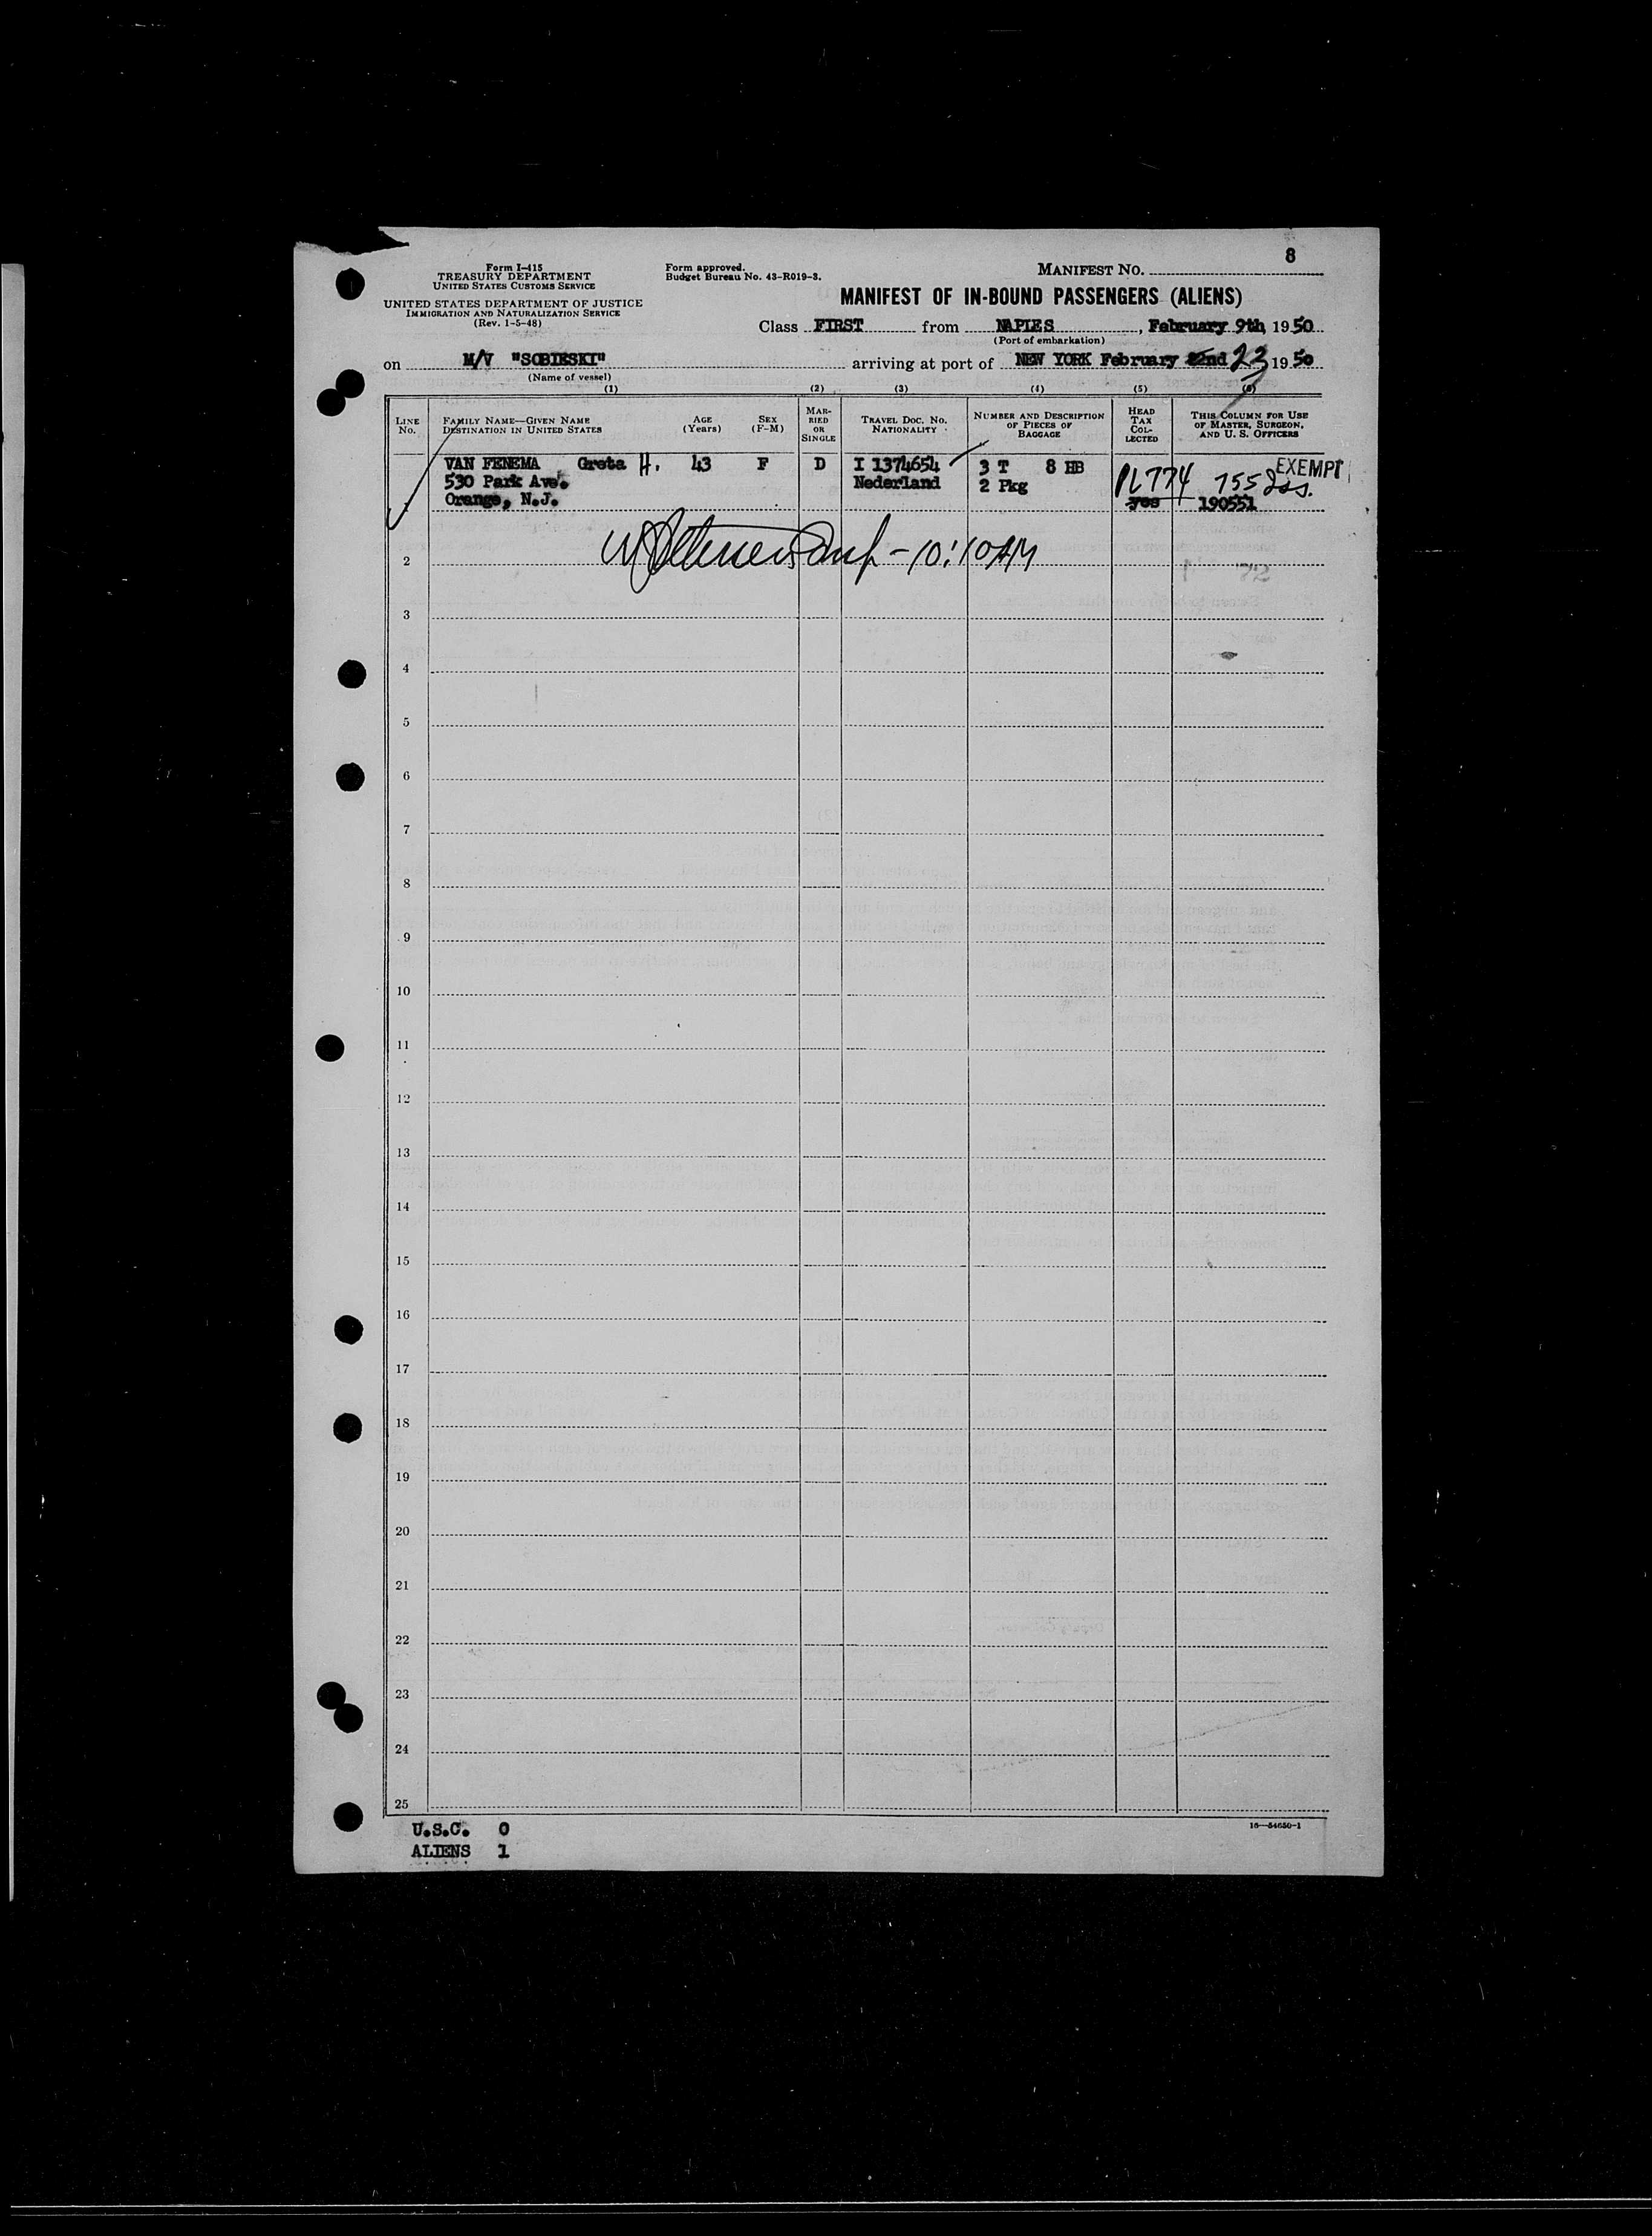 8
Form I-415
TREASURY DEPARTMENT
UNITED STATES CUSTOMS SERVICE
UNITED STATES DEPARTMENT OF JUSTICE
IMMIGRATION AND NATURALIZATION SERVICE
(Rev. 1-5-48)
Form approved.
Budget Bureau No. 43-R019-3.
MANIFEST NO.
MANIFEST OF IN-BOUND PASSENGERS (ALIENS)
Class FIRST from NAPLES, February 9th, 1950
(Port of embarkation)
on M/V "SOBIESKI" arriving at port of NEW YORK February 22nd 23 1950
(Name of vessel)
(1) (2) (3) (4) (5) (6)
LINE No.
FAMILY NAME—GIVEN NAME
DESTINATION IN UNITED STATES
AGE (Years)
SEX (F-M)
MARRIED OR SINGLE
TRAVEL DOC. NO. NATIONALITY
NUMBER AND DESCRIPTION OF PIECES OF BAGGAGE
HEAD TAX COLLECTED
THIS COLUMN FOR USE OF MASTER, SURGEON, AND U. S. OFFICERS
VAN FENEMA Greta H. 43 F D I 1374654 3 T 8 HB EXEMPT
530 Park Ave. Nederland 2 Pkg PL 774 755
Orange, N.J. yes 190551
10:10 AM
2
3
4
5
6
7
8
9
10
11
12
13
14
15
16
17
18
19
20
21
22
23
24
25
U.S.C. 0
ALIENS 1
16—54650-1